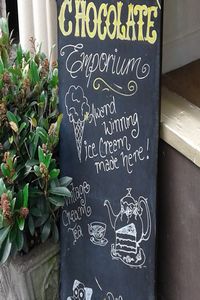 CHOCOLATE
Emporium
Award
winning
ice Cream
made here!
Village
Cream
Tea